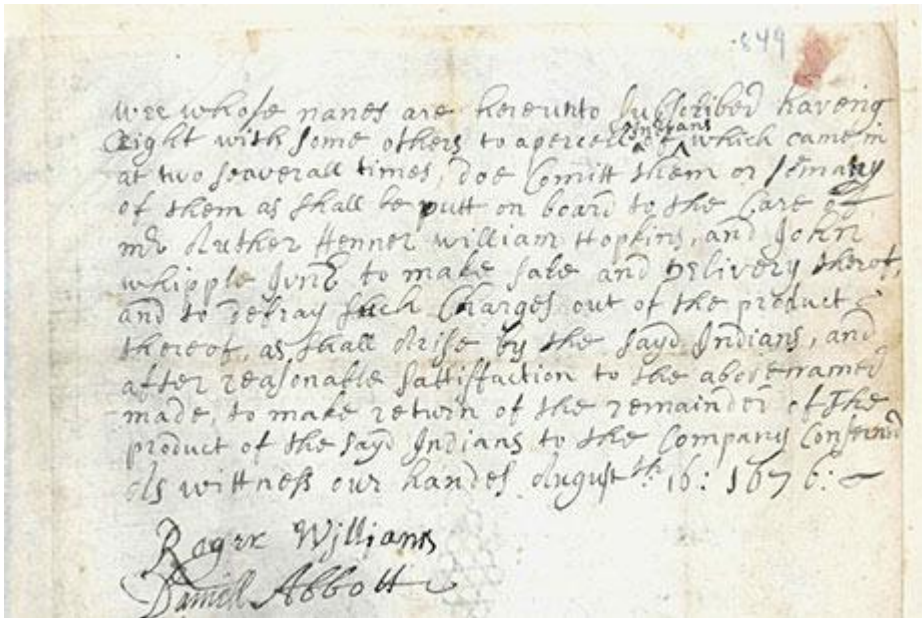 849
wee whose names are hereunto subscribed haveing
Right with some others to a percell of ^Indians which came in
at two seaverall times, doe Comitt them or so many
of them as shall be putt on board to the Care of
mr Arther Fenner William Hopkins, and John
whipple Junr to make sale and Delivery therof,
and to defray such Charges out of the product
thereof, as shall Arise by the sayd Indians, and
after reasonable sattisfaction to the abovenamed
made, to make return of the remainder of The
product of the sayd Indians to the Company Conserned
As wittness our handes August th: 16: 1676:
Roger Williams
Daniell Abbott